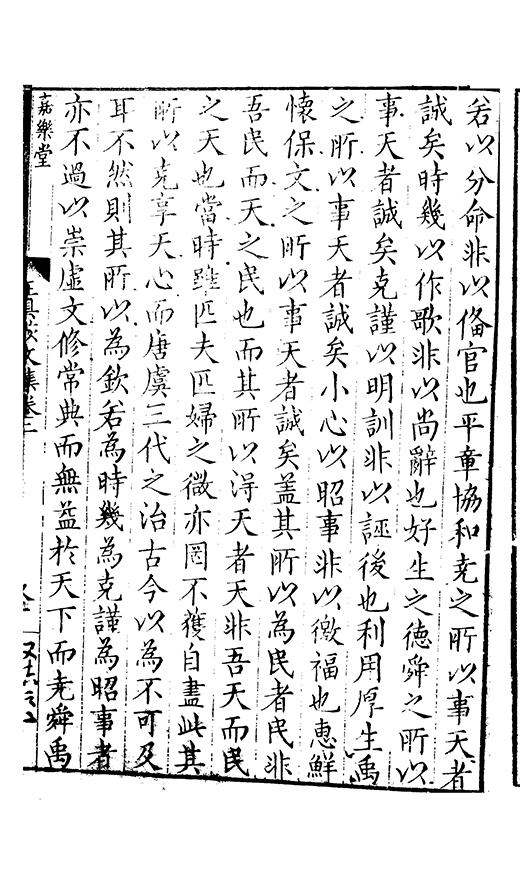 若以分命非以俻官也平章協和尭之所以事天者
誠矣時幾以作歌非以尚辭也好生之徳舜之所以
事天者誠矣克謹以明訓非以誣後也利用厚生禹
之所以事天者誠矣小心以昭事非以徼福也惠鮮
懐保文之所以事天者誠矣盖其所以為民者民非
吾民而天之民也而其所以淂天者天非吾天而民
之天也當時雖匹夫匹婦之微亦罔不獲自盡此其
所以克享天心而唐虞三代之治古今以為不可及
耳不然則其所以為欽若為時幾為克謹為昭事者
亦不過以崇虚文修常典而無益於天下而尭舜禹
嘉樂堂
文集卷二